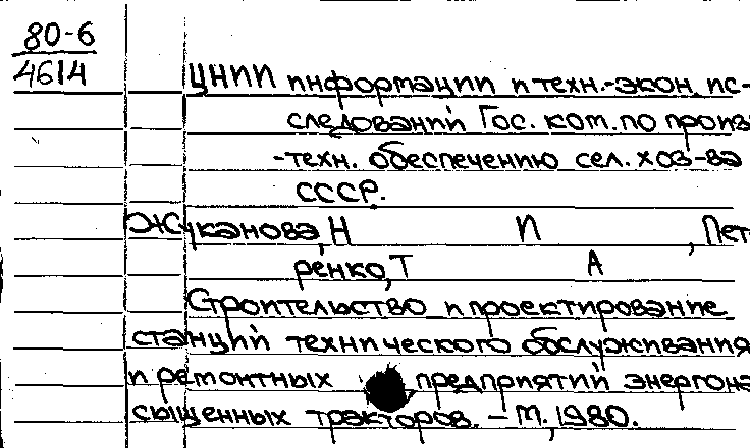 80-6
4614
ЦНИИ информации и техн.-экон. ис-
следований Гос. ком. по произв
-техн. обеспечению сел. хоз-ва
СССР.
Жуканова, Н И , Пет
ренко, Т А
Строительство и проектирование
станций технического обслуживания
и ремонтных предприятий энергона
сыщенных тракторов. – М., 1980.